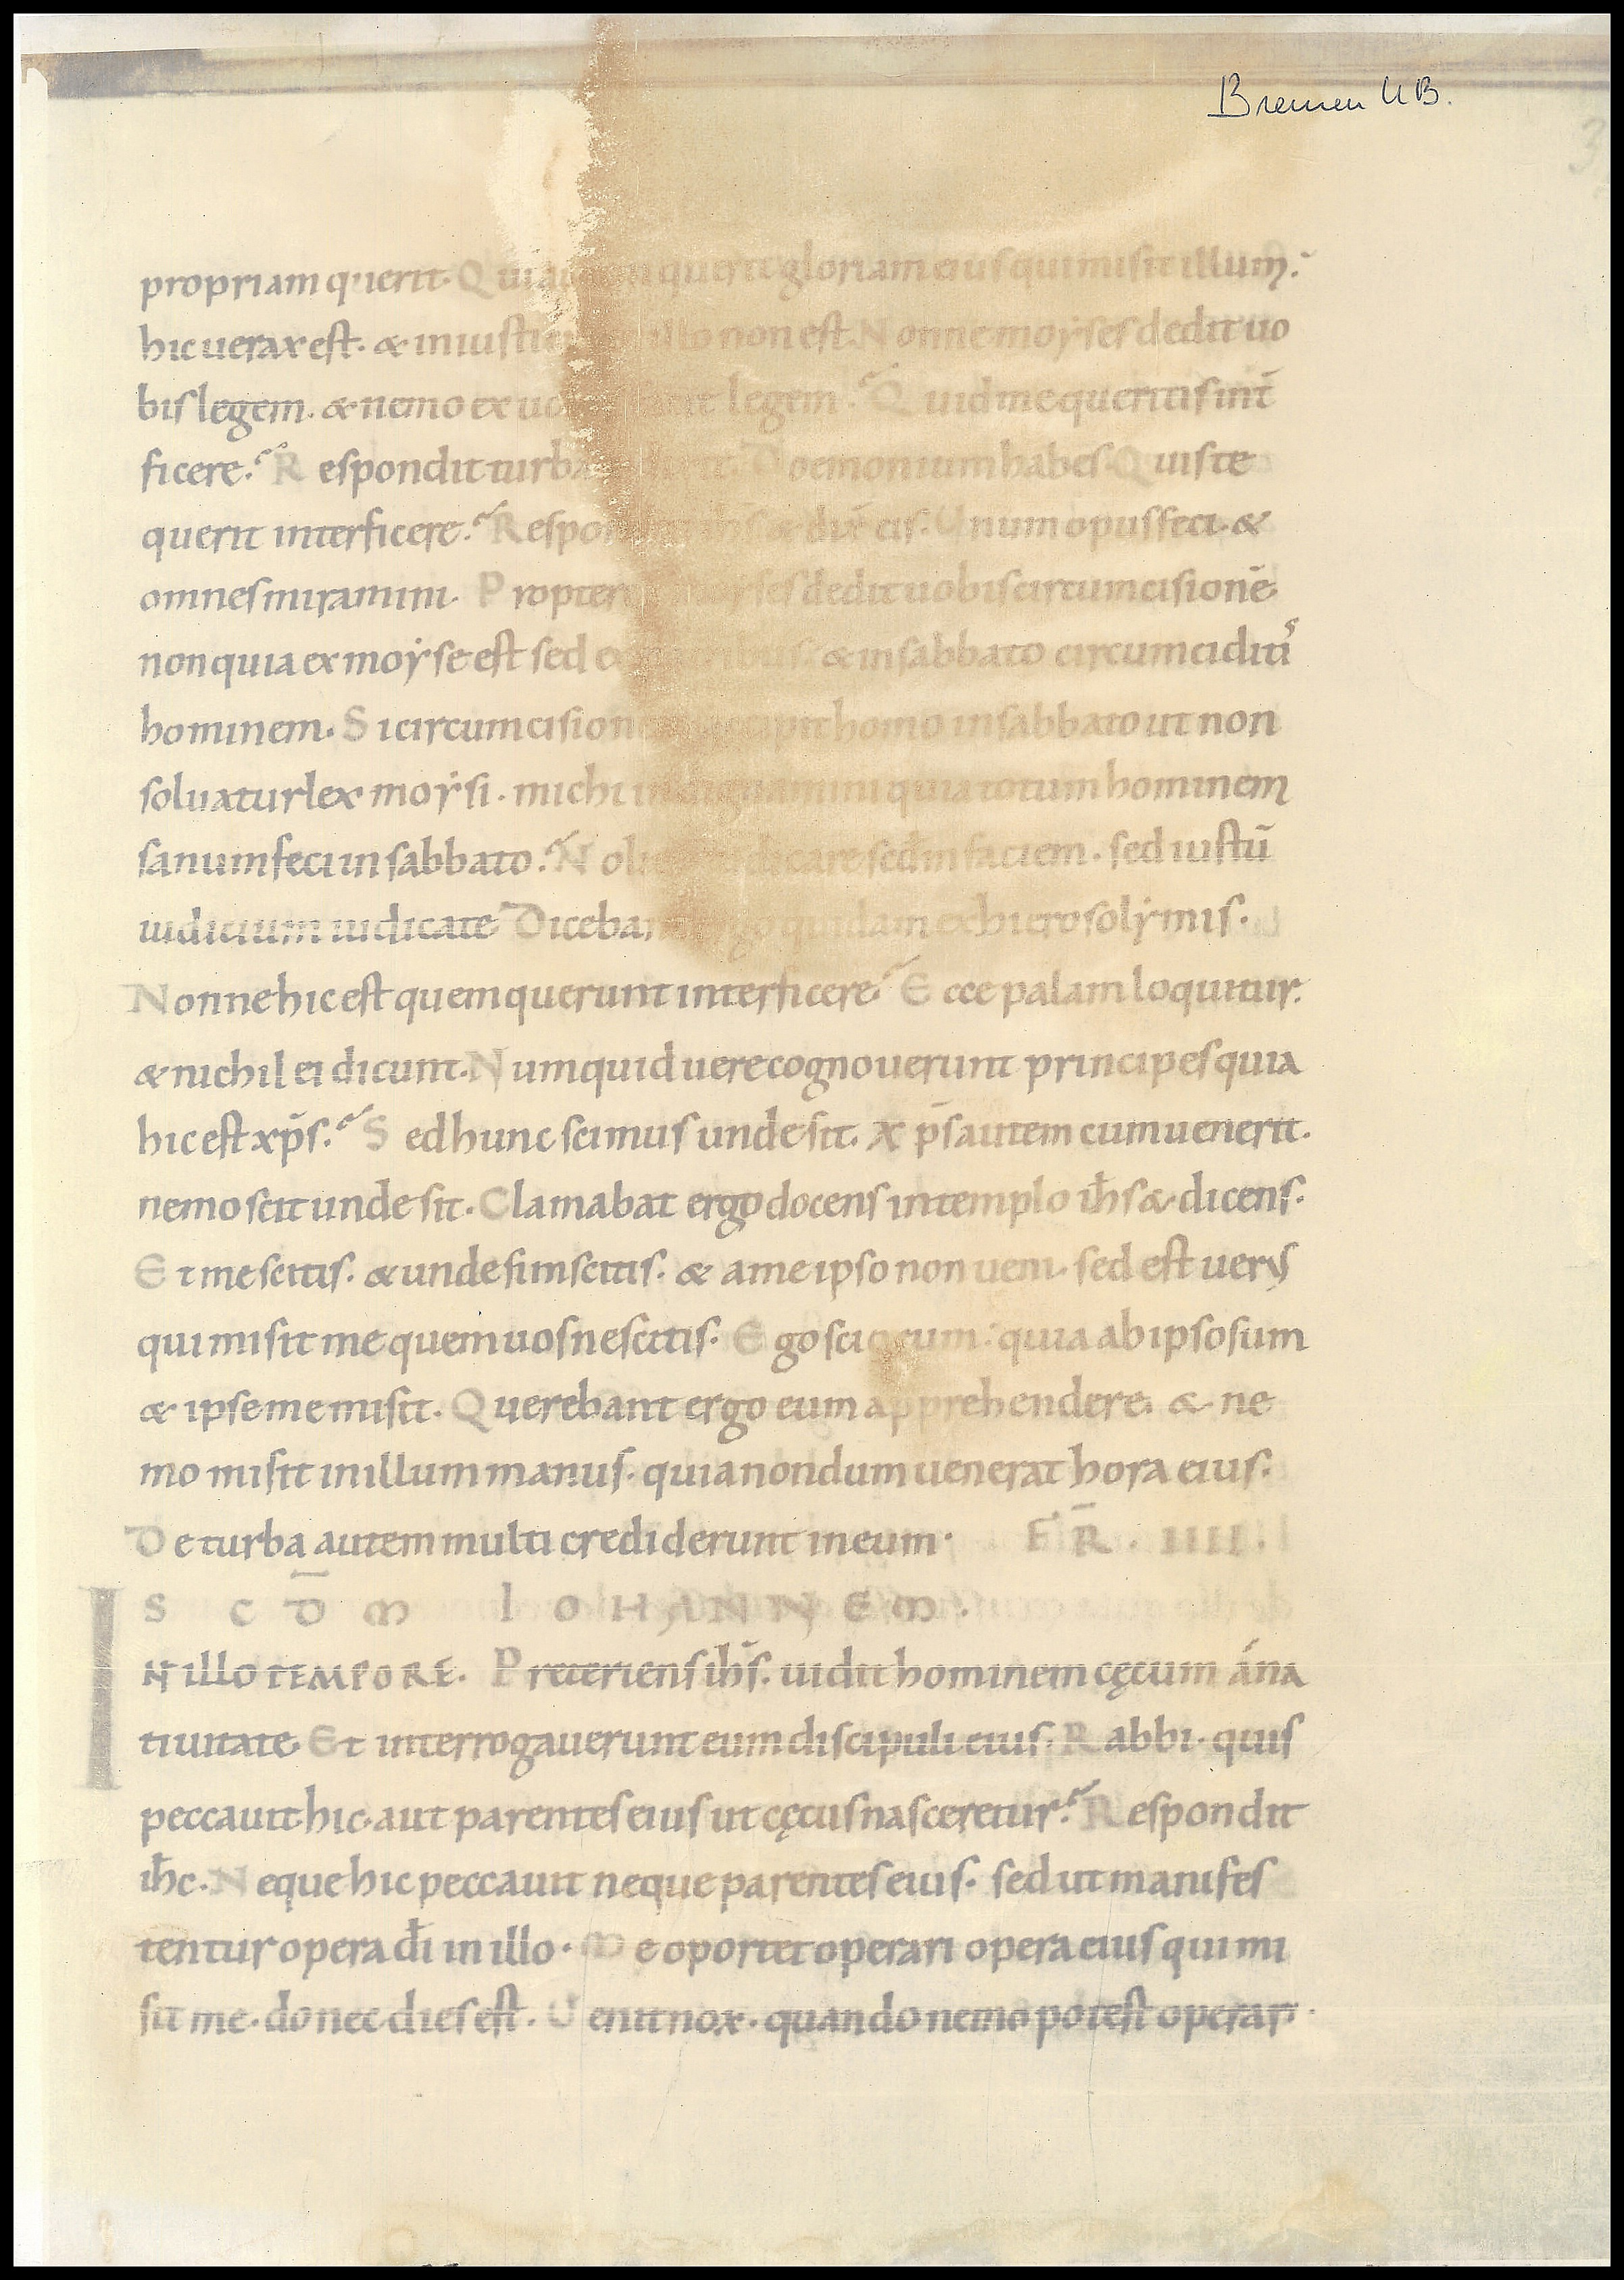 Bremen UB.
3
propriam querit. Qui autem querit gloriam eius qui misit illum.
hic uerax est. & iniusticia in illo non est. Nonne moyses dedit uo
bis legem. & nemo ex uobis facit legem Quid me queritis int̄
ficere? Respondit turba & dixit Doemonium habes. Quis te
querit interficere? Respondit ih̄s & dix̄ eis. Unum opus feci. &
omnes miramini. Propterea moyses dedit uobis circumcisionē
non quia ex moyse est sed ex patribus. & in sabbato circumciditꝰ
hominem. Si circumcisionem accipit homo in sabbato ut non
soluatur lex moysi. michi indignamini quia totum hominem
sanum feci in sabbato? Nolite iudicare sed̄m faciem. sed iustū
iudicium iudicate Dicebant ergo quidam ex hierosolymis.
Nonne hic est quem querunt interficere? Ecce palam loquitur.
& nichil ei dicunt. Numquid uere cognouerunt principes quia
hic est xp̄s? Sed hunc scimus unde sit. Xp̄s autem cum uenerit.
nemo scit unde sit. Clamabat ergo docens in templo ih̄s & dicens.
Et me scitis. & unde sim scitis. & a me ipso non ueni. sed est uerus
qui misit me quem uos nescitis. Ego scio eum. quia ab ipso sum
& ipse me misit. Querebant ergo eum apprehendere. & ne
mo misit in illum manus. quia nondum uenerat hora eius.
De turba autem multi crediderunt in eum. FR̄. IIII.
SCD̄M IOHANNEM.
IN ILLO TEMPORE. Preteriens ih̄s. uidit hominem cęcum á na
tiuitate Et interrogauerunt eum discipuli eius. Rabbi. quis
peccauit. hic. aut parentes eius ut cęcus nasceretur? Respondit
ih̄c. Neque hic peccauit neque parentes eius. sed ut manifes
tentur opera dī in illo. Me oportet operari opera eius qui mi
sit me. donec dies est. Uenit nox. quando nemo potest operari.